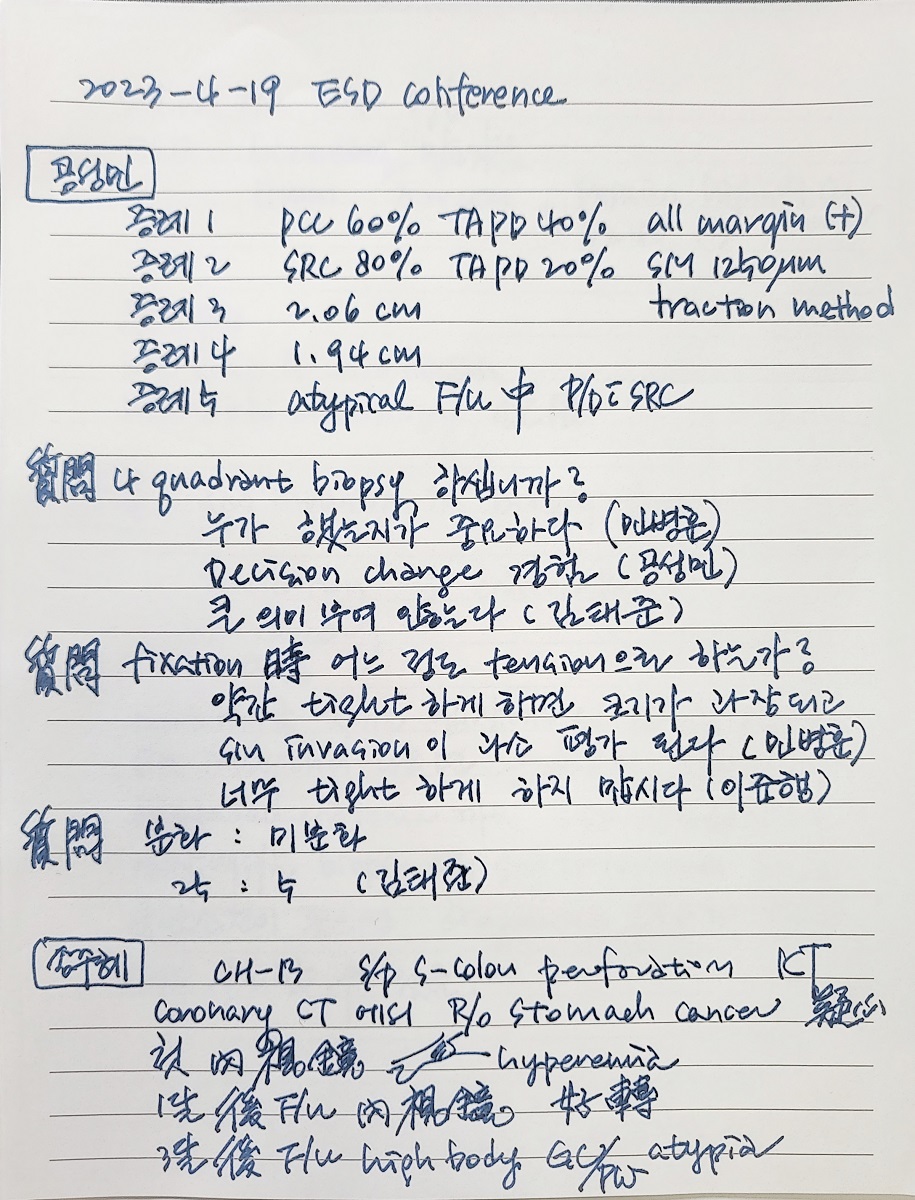 2023-4-19 ESD conference
공성민
증례 1 PCC 60% TAPD 40% all margin (+)
증례 2 SRC 80% TAPD 20% SM 1250μm
증례 3 2.06 cm traction method
증례 4 1.94 cm
증례 5 atypical F/u 中 P/D SRC
質問 4 quadrant biopsy 하십니까?
누가 했는지가 중요하다 (민병훈)
Decision change 경험 (공성민)
큰 의미 부여 안한다 (김태준)
質問 fixation 時 어느 정도 tension으로 하는가?
약간 tight 하게 하면 크기가 과장되고
sm invasion이 과소 평가 된다 (민병훈)
너무 tight 하게 하지 맙시다 (이준행)
質問 분화 : 미분화
25 : 5 (김태준)
송주혜 CH-B s/p S-colon perforation
Coronary CT 에서 R/o stomach cancer 疑心
첫 內視鏡 hyperemia
1年 後 F/u 內視鏡 好轉
3年 後 F/u high body GC/PW atypia